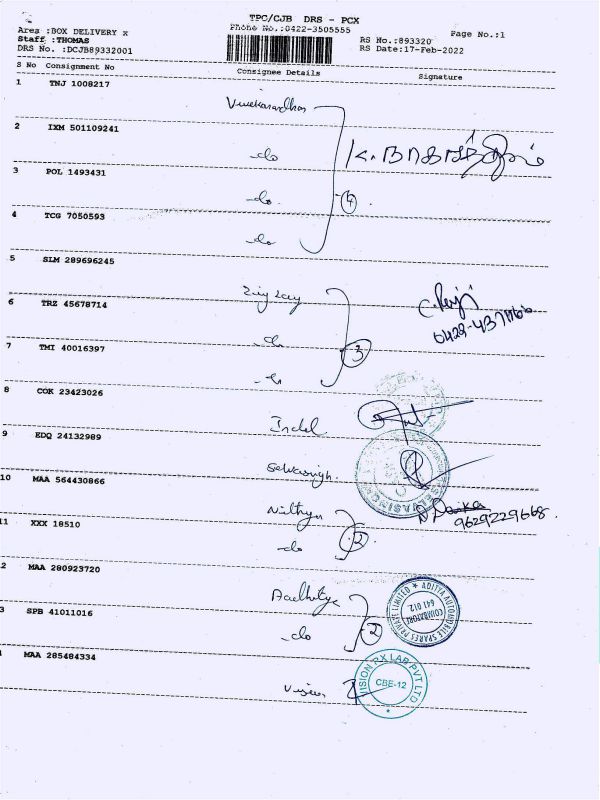 TPC/CJB DRS - PCX
Area :BOX DELIVERY X
Phone No.:0422-3505555
Page No.:1
Staff :THOMAS
RS No.:893320
DRS No. :DCJB89332001
RS Date:17-Feb-2022
S No Consignment No Consignee Details Signature
1 TNJ 1008217
Vivekanandhan
2 IXM 501109241
do
3 POL 1493431
do
4
4 TCG 7050593
do
5 SLM 289696245
Zig Zag
6 TRZ 45678714
do
7 TMI 40016397
3
do
8 COK 23423026
Indel
9 EDQ 24132989
Selvasingh
10 MAA 564430866
Nithya
9629229668
11 XXX 18510
do
2
2 MAA 280923720
Aadhitya
ADITYA AUTOMOBILE SPARES PRIVATE LIMITED
COIMBATORE
641 012
3 SPB 41011016
do
2
MAA 285484334
Vision
VISION RX LAB PVT LTD
CBE-12